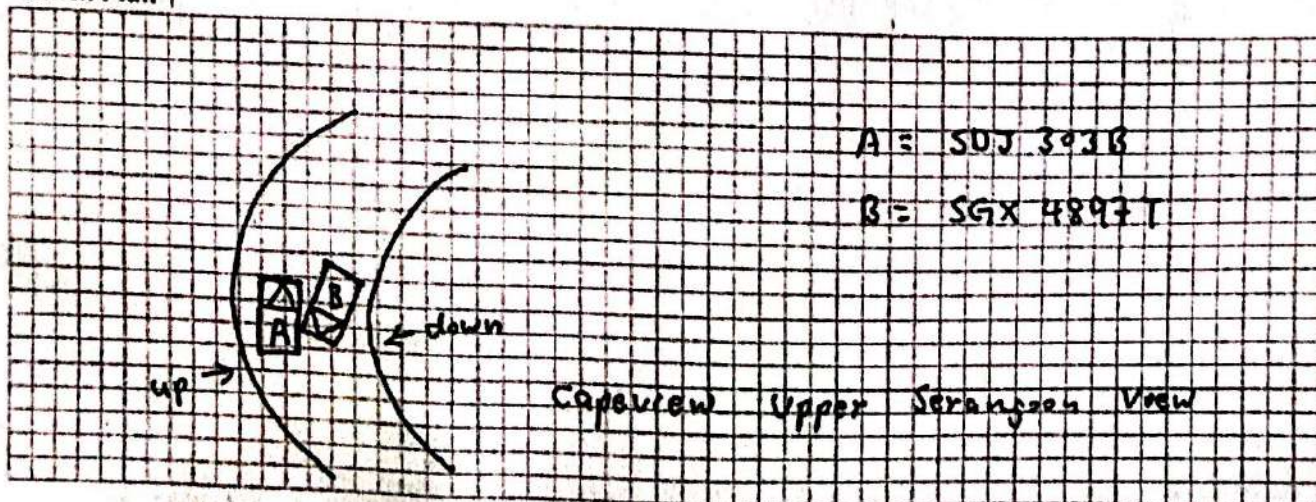 A = SDJ 393B
B = SGX 4897T
B
A
← down
up →
Capeview Upper Serangoon View